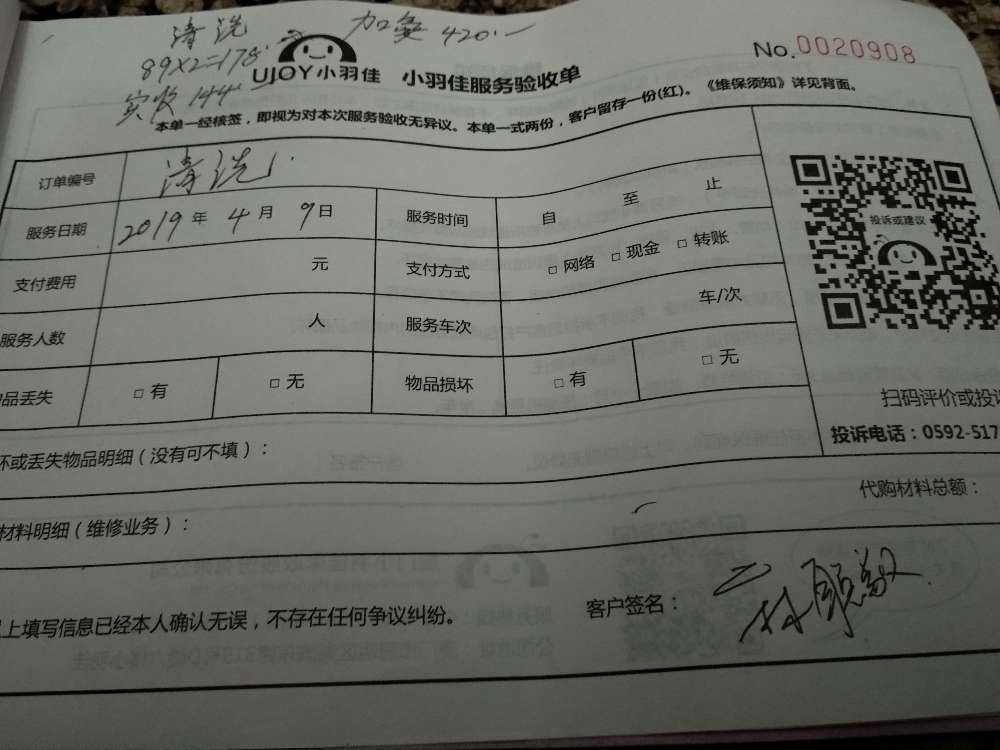 清洗 加氟 420.一
89×2=178.
实收 144
UJOY小羽佳 小羽佳服务验收单 No.0020908
本单一经核签，即视为对本次服务验收无异议。本单一式两份，客户留存一份(红)。《维保须知》详见背面。
订单编号 清洗
服务日期 2019年 4月 9日 服务时间 自 至 止
支付费用 元 支付方式 □ 网络 □ 现金 □ 转账
服务人数 人 服务车次 车/次
品丢失 □ 有 □ 无 物品损坏 □ 有 □ 无
投诉或建议
扫码评价或投诉
投诉电话：0592-517
坏或丢失物品明细（没有可不填）：
材料明细（维修业务）： 代购材料总额：
上填写信息已经本人确认无误，不存在任何争议纠纷。 客户签名：